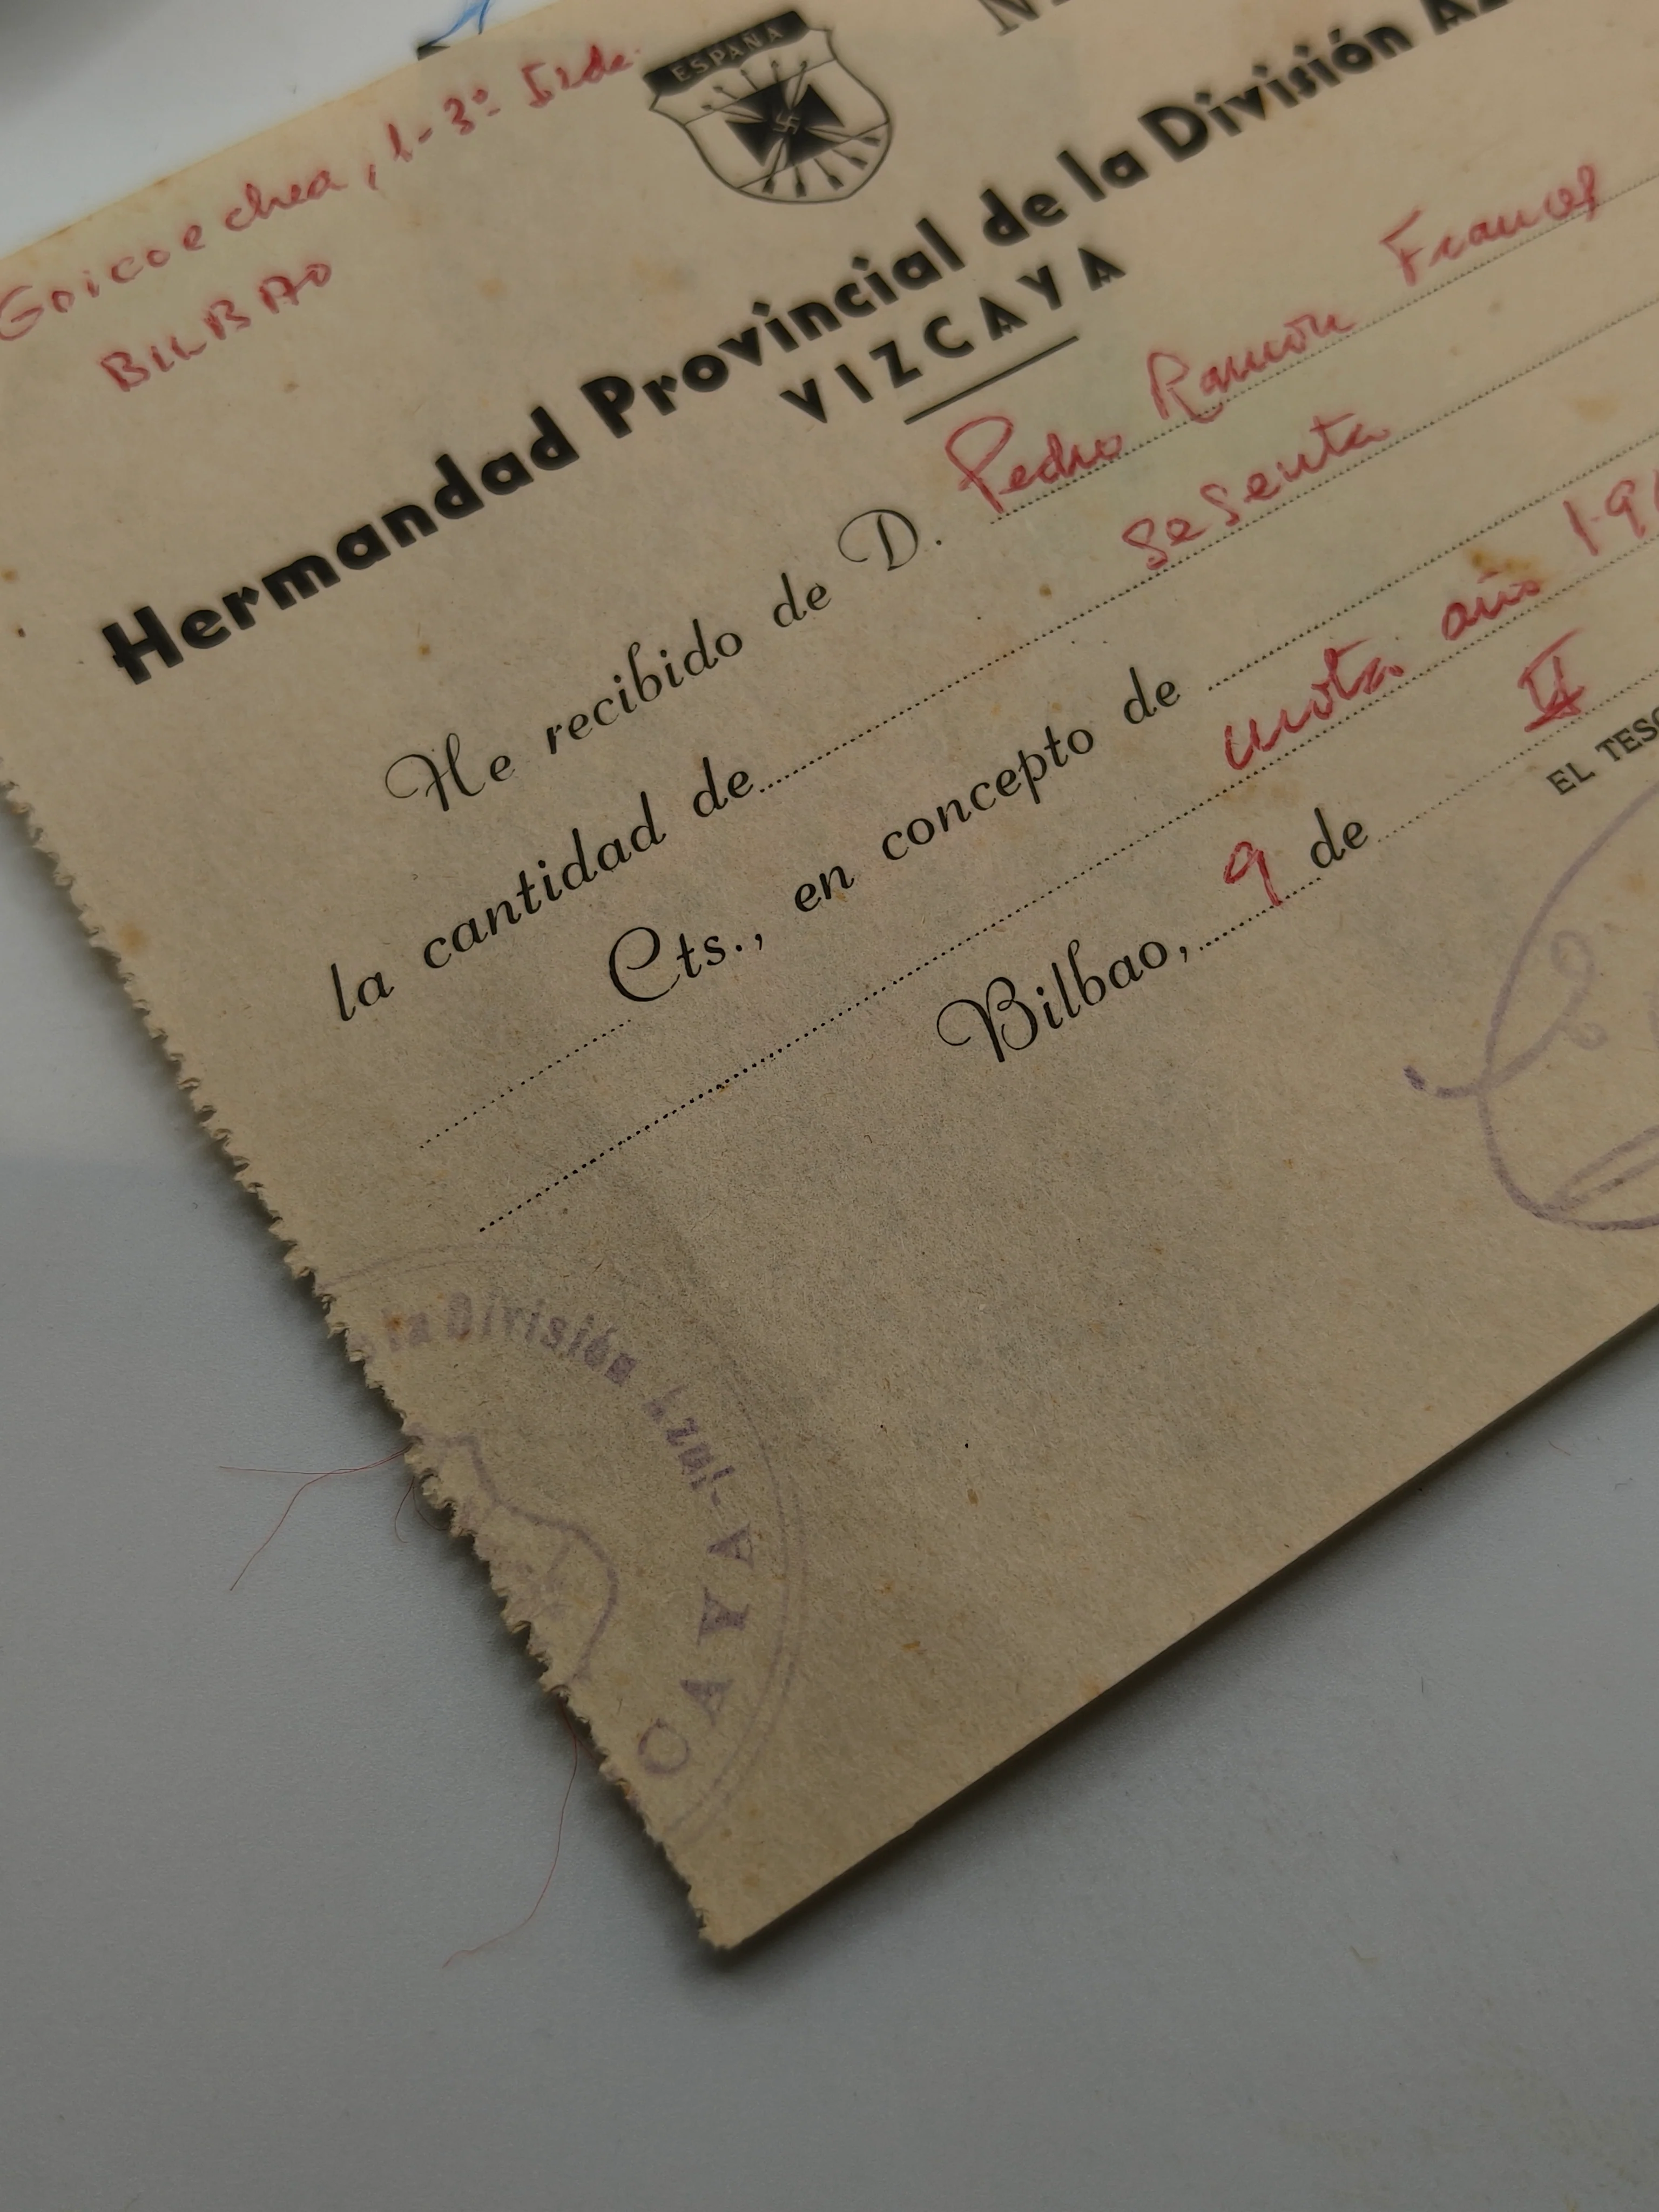 Goicoechea, 1-3º Izda.
BILBAO
ESPAÑA
N
Hermandad Provincial de la División Az
VIZCAYA
He recibido de D. Pedro Ramón Frances
la cantidad de sesenta
Cts., en concepto de
cuota año 19
Bilbao, 9 de II
EL TESO
la División Azul-
CAYA